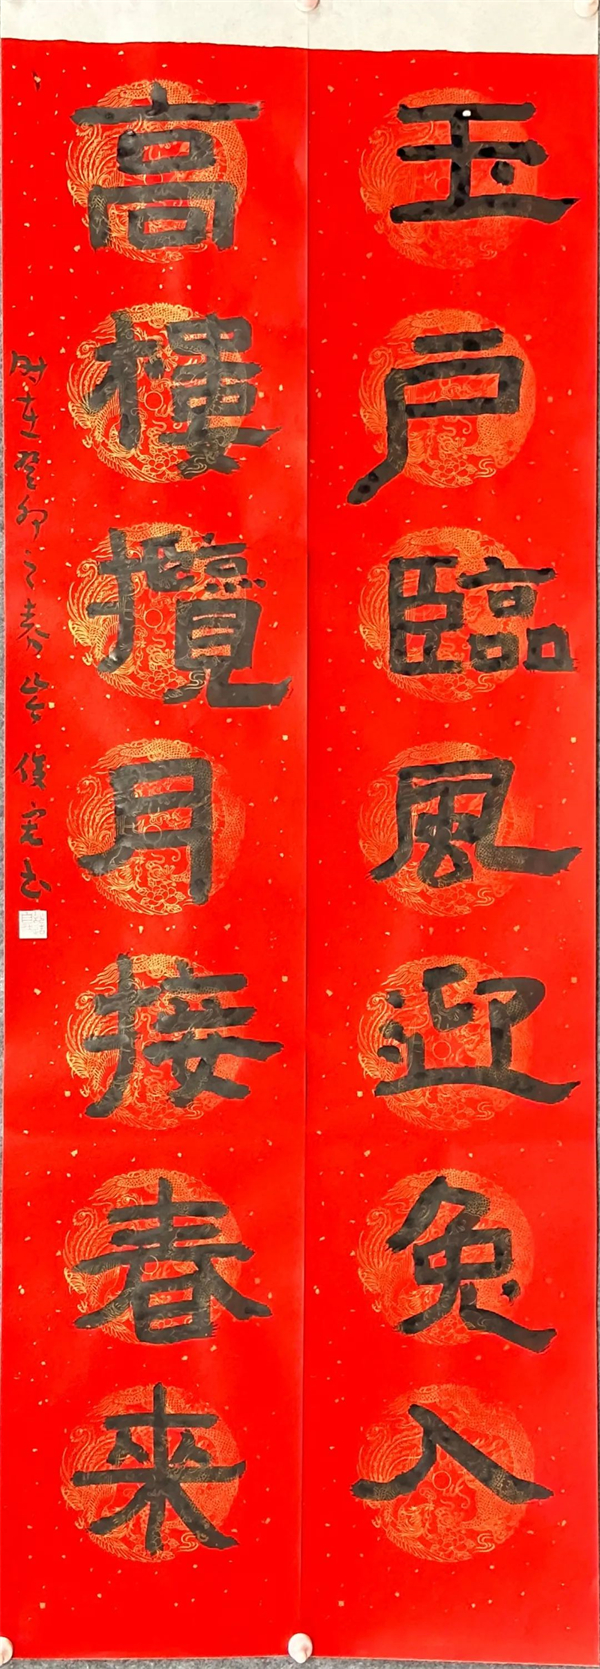 玉戶臨風迎兔入
高樓攬月接春來
時在癸卯之春
俊宏書